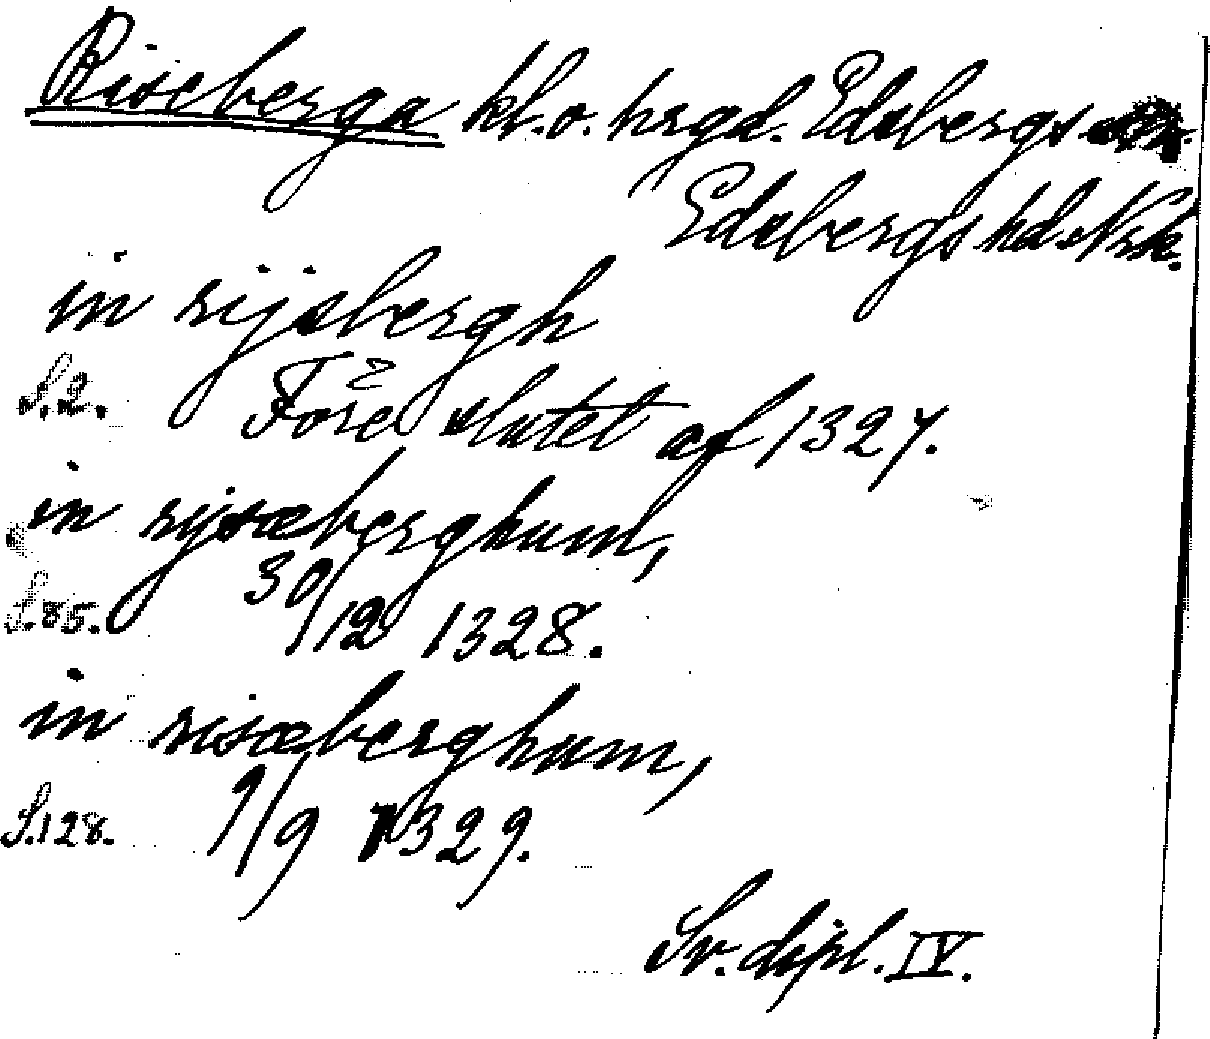 Riseberga kl. o. hrgd. Edsbergs sn.
Edsbergs hd. Nrk.
in rijsbergh
S. 2. Före slutet af 1327.
in rijsæberghum,
S. 85. 30/12 1328.
in risæberghum,
S. 128. 9/9 1329.
Sv. dipl. IV.